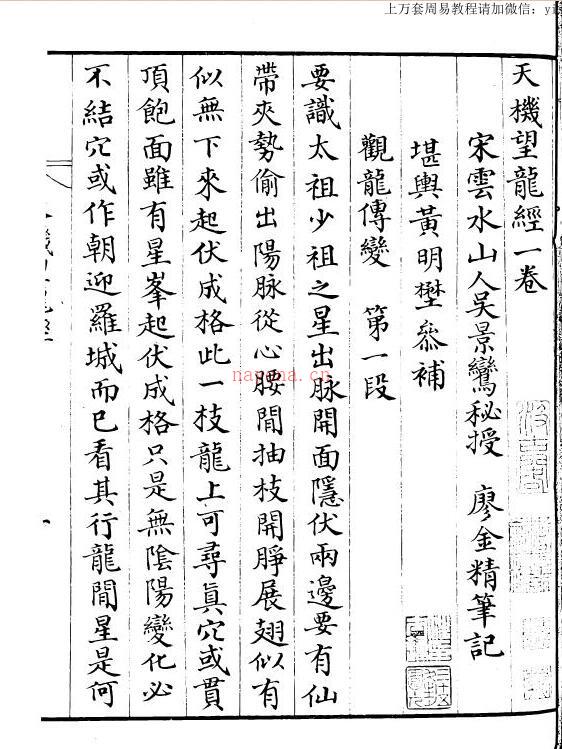 上万套周易教程请加微信：yi
天機望龍經一卷
宋雲水山人吳景鸞秘授　廖金精筆記
堪輿黃明㙳叅補
觀龍傳變　第一段
要識太祖少祖之星出脉開面隱伏兩邊要有仙
帶夾勢偷出陽脉從心腰閒抽枝開睜展翅似有
似無下來起伏成格此一枝龍上可尋眞穴或貫
頂飽面雖有星峯起伏成格只是無陰陽變化必
不結穴或作朝迎羅城而已看其行龍閒星是何
nayona.cn